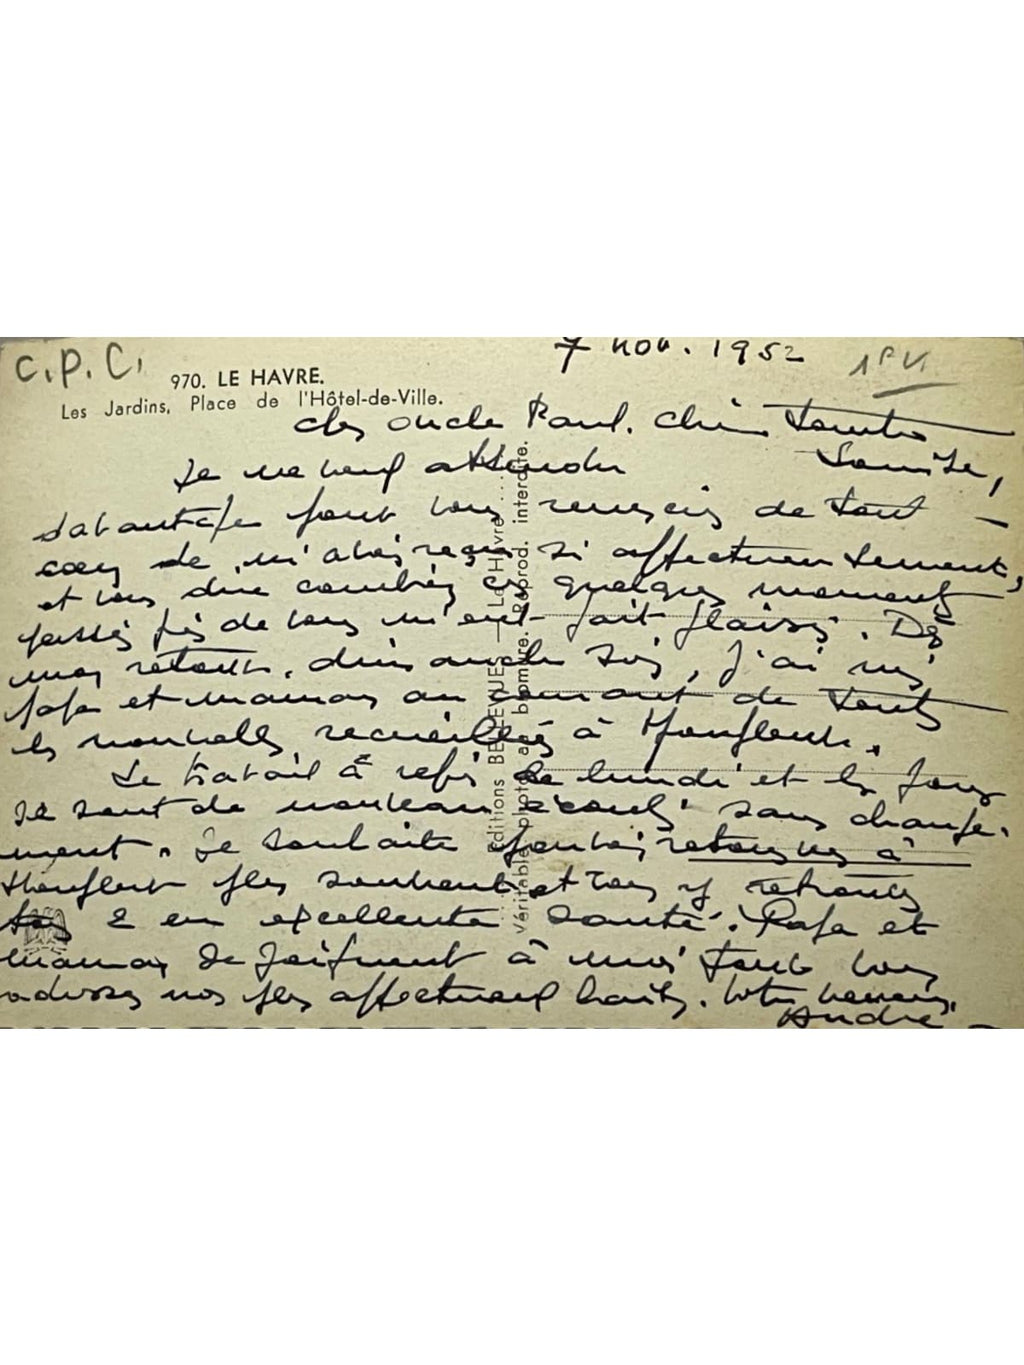 7 nov. 1952
C.P.C.
970. LE HAVRE.
Les Jardins, Place de l'Hôtel-de-Ville.
cher oncle Paul. chère tante
Louise,
Je ne veux attendre
davantage pour vous remercier de tout
cœur de m'avoir reçu si affectueusement,
et vous dire combien ces quelques moments
passés près de vous m'ont fait plaisir. Dès
mon retour, dimanche soir, j'ai mis
papa et maman au courant de toutes
les nouvelles recueillies à Honfleur.
Le travail a repris le lundi et les jours
se sont de nouveau écoulés sans change-
ment. Je souhaite pouvoir retourner à
Honfleur plus souvent et vous y retrouver
2 en excellente santé. Papa et
maman se joignent à moi pour vous
adresser nos plus affectueux baisers. Votre neveu,
André
Editions BELLEVUE - Le Havre
Véritable photo au bromure. Reprod. interdite.